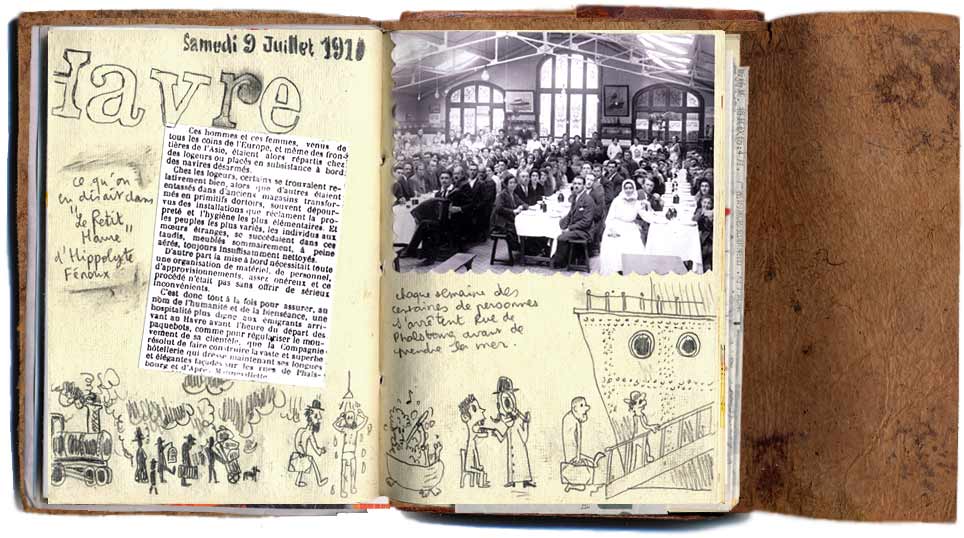 Samedi 9 Juillet 1910
Havre
Ces hommes et ces femmes, venus de
tous les coins de l'Europe, et même des fron-
tières de l'Asie, étaient alors répartis chez
des logeurs ou placés en subsistance à bord
des navires désarmés.
Chez les logeurs, certains se trouvaient re-
lativement bien, alors que d'autres étaient
entassés dans d'anciens magasins transfor-
més en primitifs dortoirs, souvent dépour-
vus des installations que réclament la pro-
preté et l'hygiène les plus élémentaires. Et
les peuples les plus variés, les individus aux
mœurs étranges, se succédaient dans ces
taudis, meublés sommairement, à peine
aérés, toujours insuffisamment nettoyés.
D'autre part la mise à bord nécessitait toute
une organisation de matériel, de personnel,
d'approvisionnements, assez onéreux et ce
procédé n'était pas sans offrir de sérieux
inconvénients.
C'est donc tout à la fois pour assurer, au
nom de l'humanité et de la bienséance, une
hospitalité plus digne aux émigrants arri-
vant au Havre avant l'heure du départ des
paquebots, comme pour régulariser le mou-
vement de sa clientèle, que la Compagnie
résolut de faire construire la vaste et superbe
hôtellerie qui dresse maintenant ses longues
et élégantes façades sur les rues de Phals-
bourg et d'Apr
ce qu'on
en disait dans
"Le Petit
Havre"
d'Hippolyte
Fénoux
chaque semaine des
centaines de personnes
s'arrêtent Rue de
Phalsbourg avant de
prendre la mer.